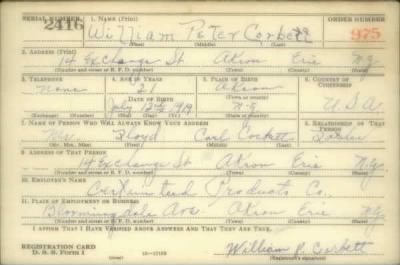 SERIAL NUMBER 1. NAME (Print) ORDER NUMBER
2416 William Peter Corbett 975
(First) (Middle) (Last)
2. ADDRESS (Print)
14 Exchange St Akron Erie N.Y.
(Number and street or R. F. D. number) (Town) (County) (State)
3. TELEPHONE 4. AGE IN YEARS 5. PLACE OF BIRTH 6. COUNTRY OF CITIZENSHIP
None 21 Akron
DATE OF BIRTH
July 12th 1919 N.Y. U.S.A.
(Exchange) (Number) (Mo.) (Day) (Yr.) (Town or county) (State or country)
7. NAME OF PERSON WHO WILL ALWAYS KNOW YOUR ADDRESS 8. RELATIONSHIP OF THAT PERSON
Mr. Floyd Carl Corbett
(Mr., Mrs., Miss) (First) (Middle) (Last)
9. ADDRESS OF THAT PERSON
14 Exchange St Akron Erie N.Y.
(Number and street or R. F. D. number) (Town) (County) (State)
10. EMPLOYER'S NAME
Certainteed Products Co.
11. PLACE OF EMPLOYMENT OR BUSINESS
Bloomingdale Ave. Akron Erie N.Y.
(Number and street or R. F. D. number) (Town) (County) (State)
I AFFIRM THAT I HAVE VERIFIED ABOVE ANSWERS AND THAT THEY ARE TRUE.
REGISTRATION CARD
D. S. S. Form 1 William P. Corbett
(Registrant's signature)